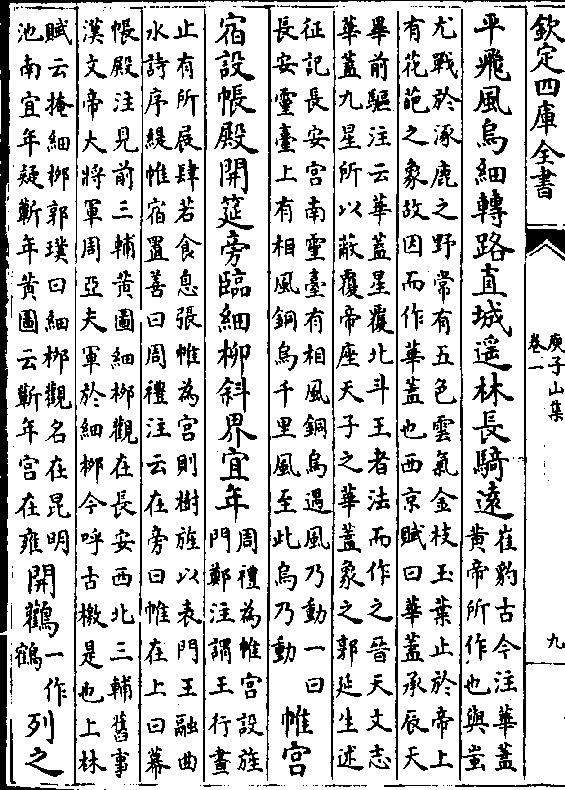 欽定四庫全書
庾子山集
卷一
九
平飛風烏細轉路直城遥林長騎遠
崔豹古今注華蓋
黄帝所作也與蚩
尤戰於涿鹿之野常有五色雲氣金枝玉葉止於帝上
有花葩之象故因而作華蓋也西京賦曰華蓋承辰天
畢前驅注云華蓋星覆北斗王者法而作之晉天文志
華蓋九星所以蔽覆帝座天子之華蓋象之郭延生述
征記長安宫南靈臺有相風銅烏遇風乃動一曰
長安靈臺上有相風銅烏千里風至此烏乃動
帷宫
宿設帳殿開筵旁臨細柳斜界宜年
周禮為帷宫設旌
門鄭注謂王行晝
止有所展肆若食息張帷為宫則樹旌以表門王融曲
水詩序緹帷宿置善曰周禮注云在旁曰帷在上曰幕
帳殿注見前三輔黄圖細栁觀在長安西北三輔舊事
漢文帝大將軍周亞夫軍於細栁今呼古檄是也上林
賦云掩細栁郭璞曰細栁觀名在昆明
池南宜年疑蘄年黄圖云蘄年宫在雍
開鸛
一作
鶴
列之